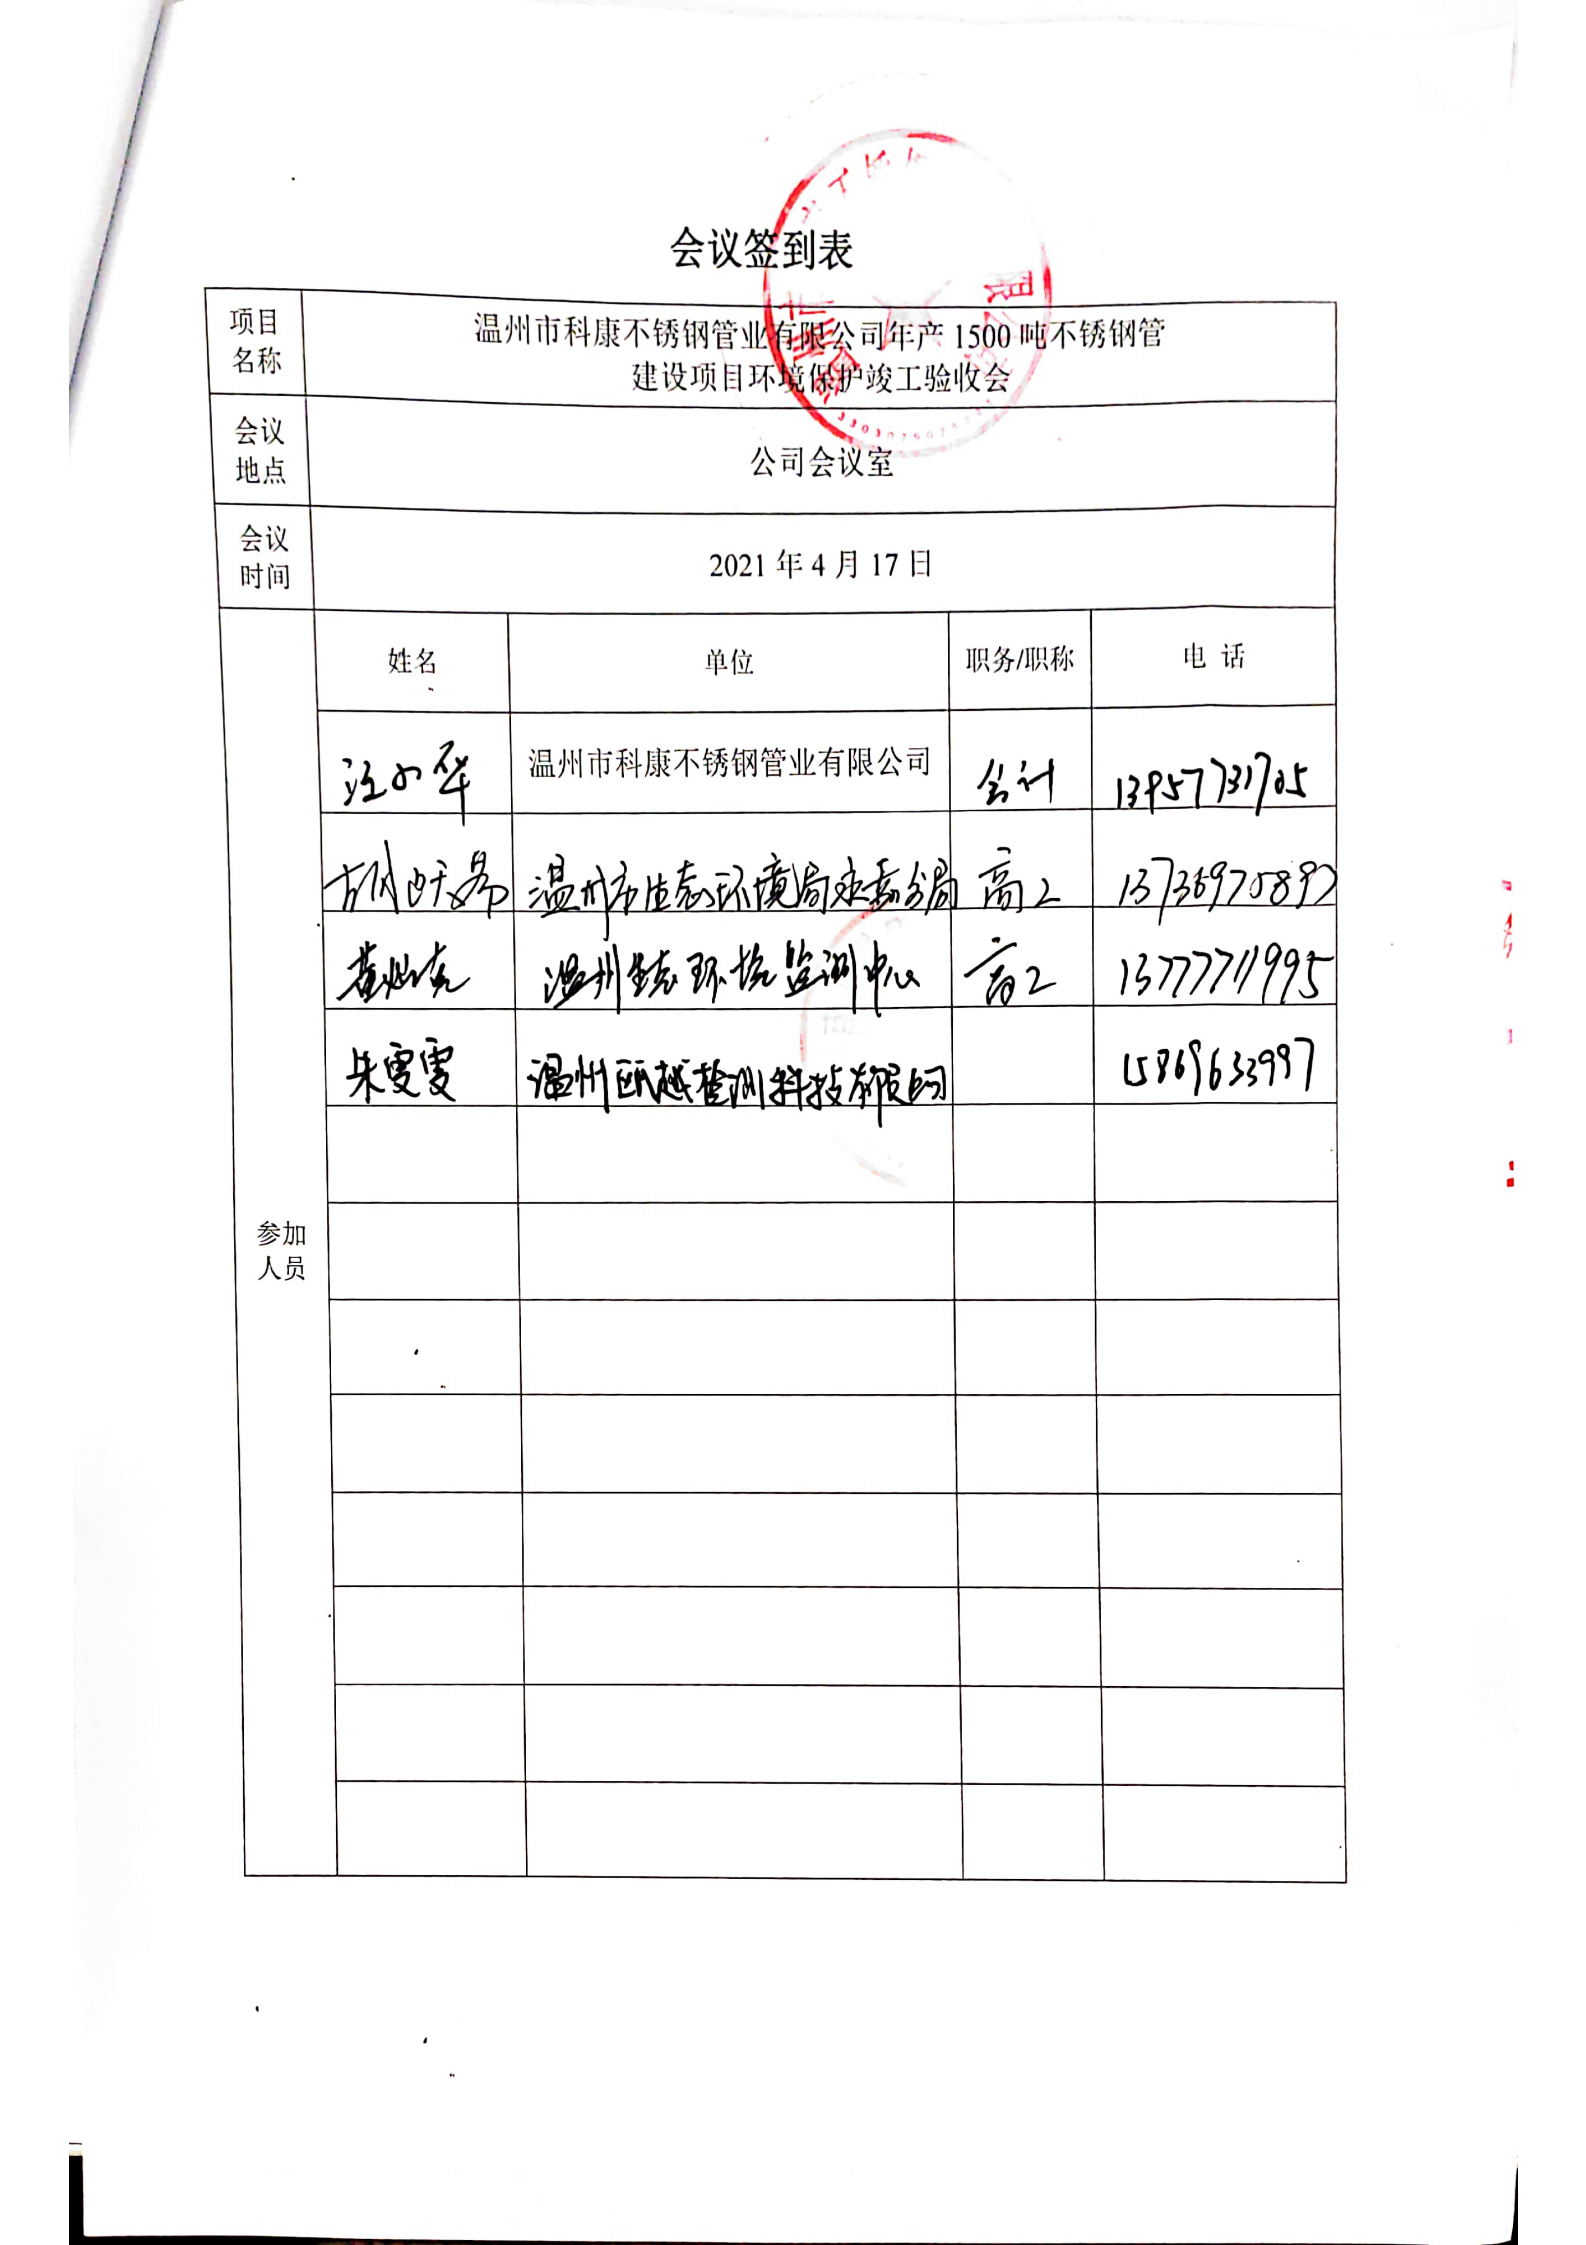 会议签到表
项目
名称
温州市科康不锈钢管业有限公司年产 1500 吨不锈钢管
建设项目环境保护竣工验收会
会议
地点
公司会议室
会议
时间
2021 年 4 月 17 日
姓名 单位 职务/职称 电 话
汪小华 温州市科康不锈钢管业有限公司 会计 13957731705
温州市生态环境局永嘉分局 高工 13736970897
温州生态环境监测中心 高工 13777711995
朱雯雯 温州瓯越检测科技有限公司 15869633997
参加
人员